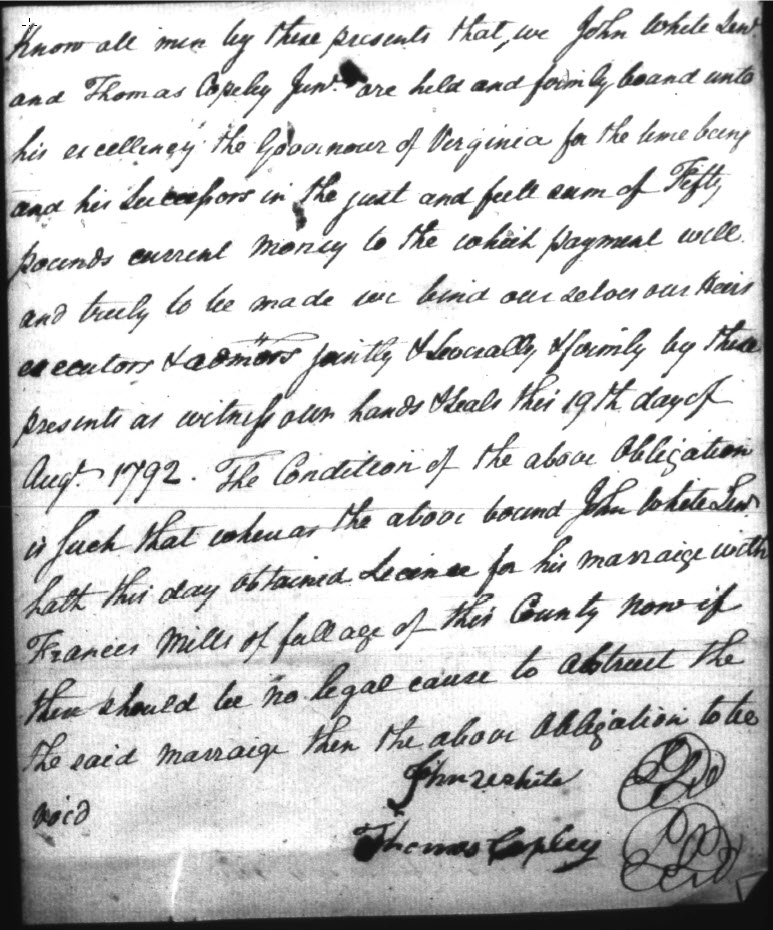 Know all men by these presents that, we John White Senr
and Thomas Copley Junr. are held and firmly bound unto
his excellency the Govornour of Virginia for the time being
and his Successors in the just and full sum of Fifty
pounds current money to the which payment will
and truly to be made we bind our selves our Heirs
executors & admors jointly & Severally & firmly by these
presents as witness our hands & Seals this 19th day of
Augt. 1792. The Condition of the above Obligation
is Such that wheras the above bound John White Senr
hath this day obtained Licence for his marraige with
Frances Mills of full age of this County now if
there should be no legal cause to abstruct the
the said marraige then the above Obligation to be
void
John White
Thomas Copley